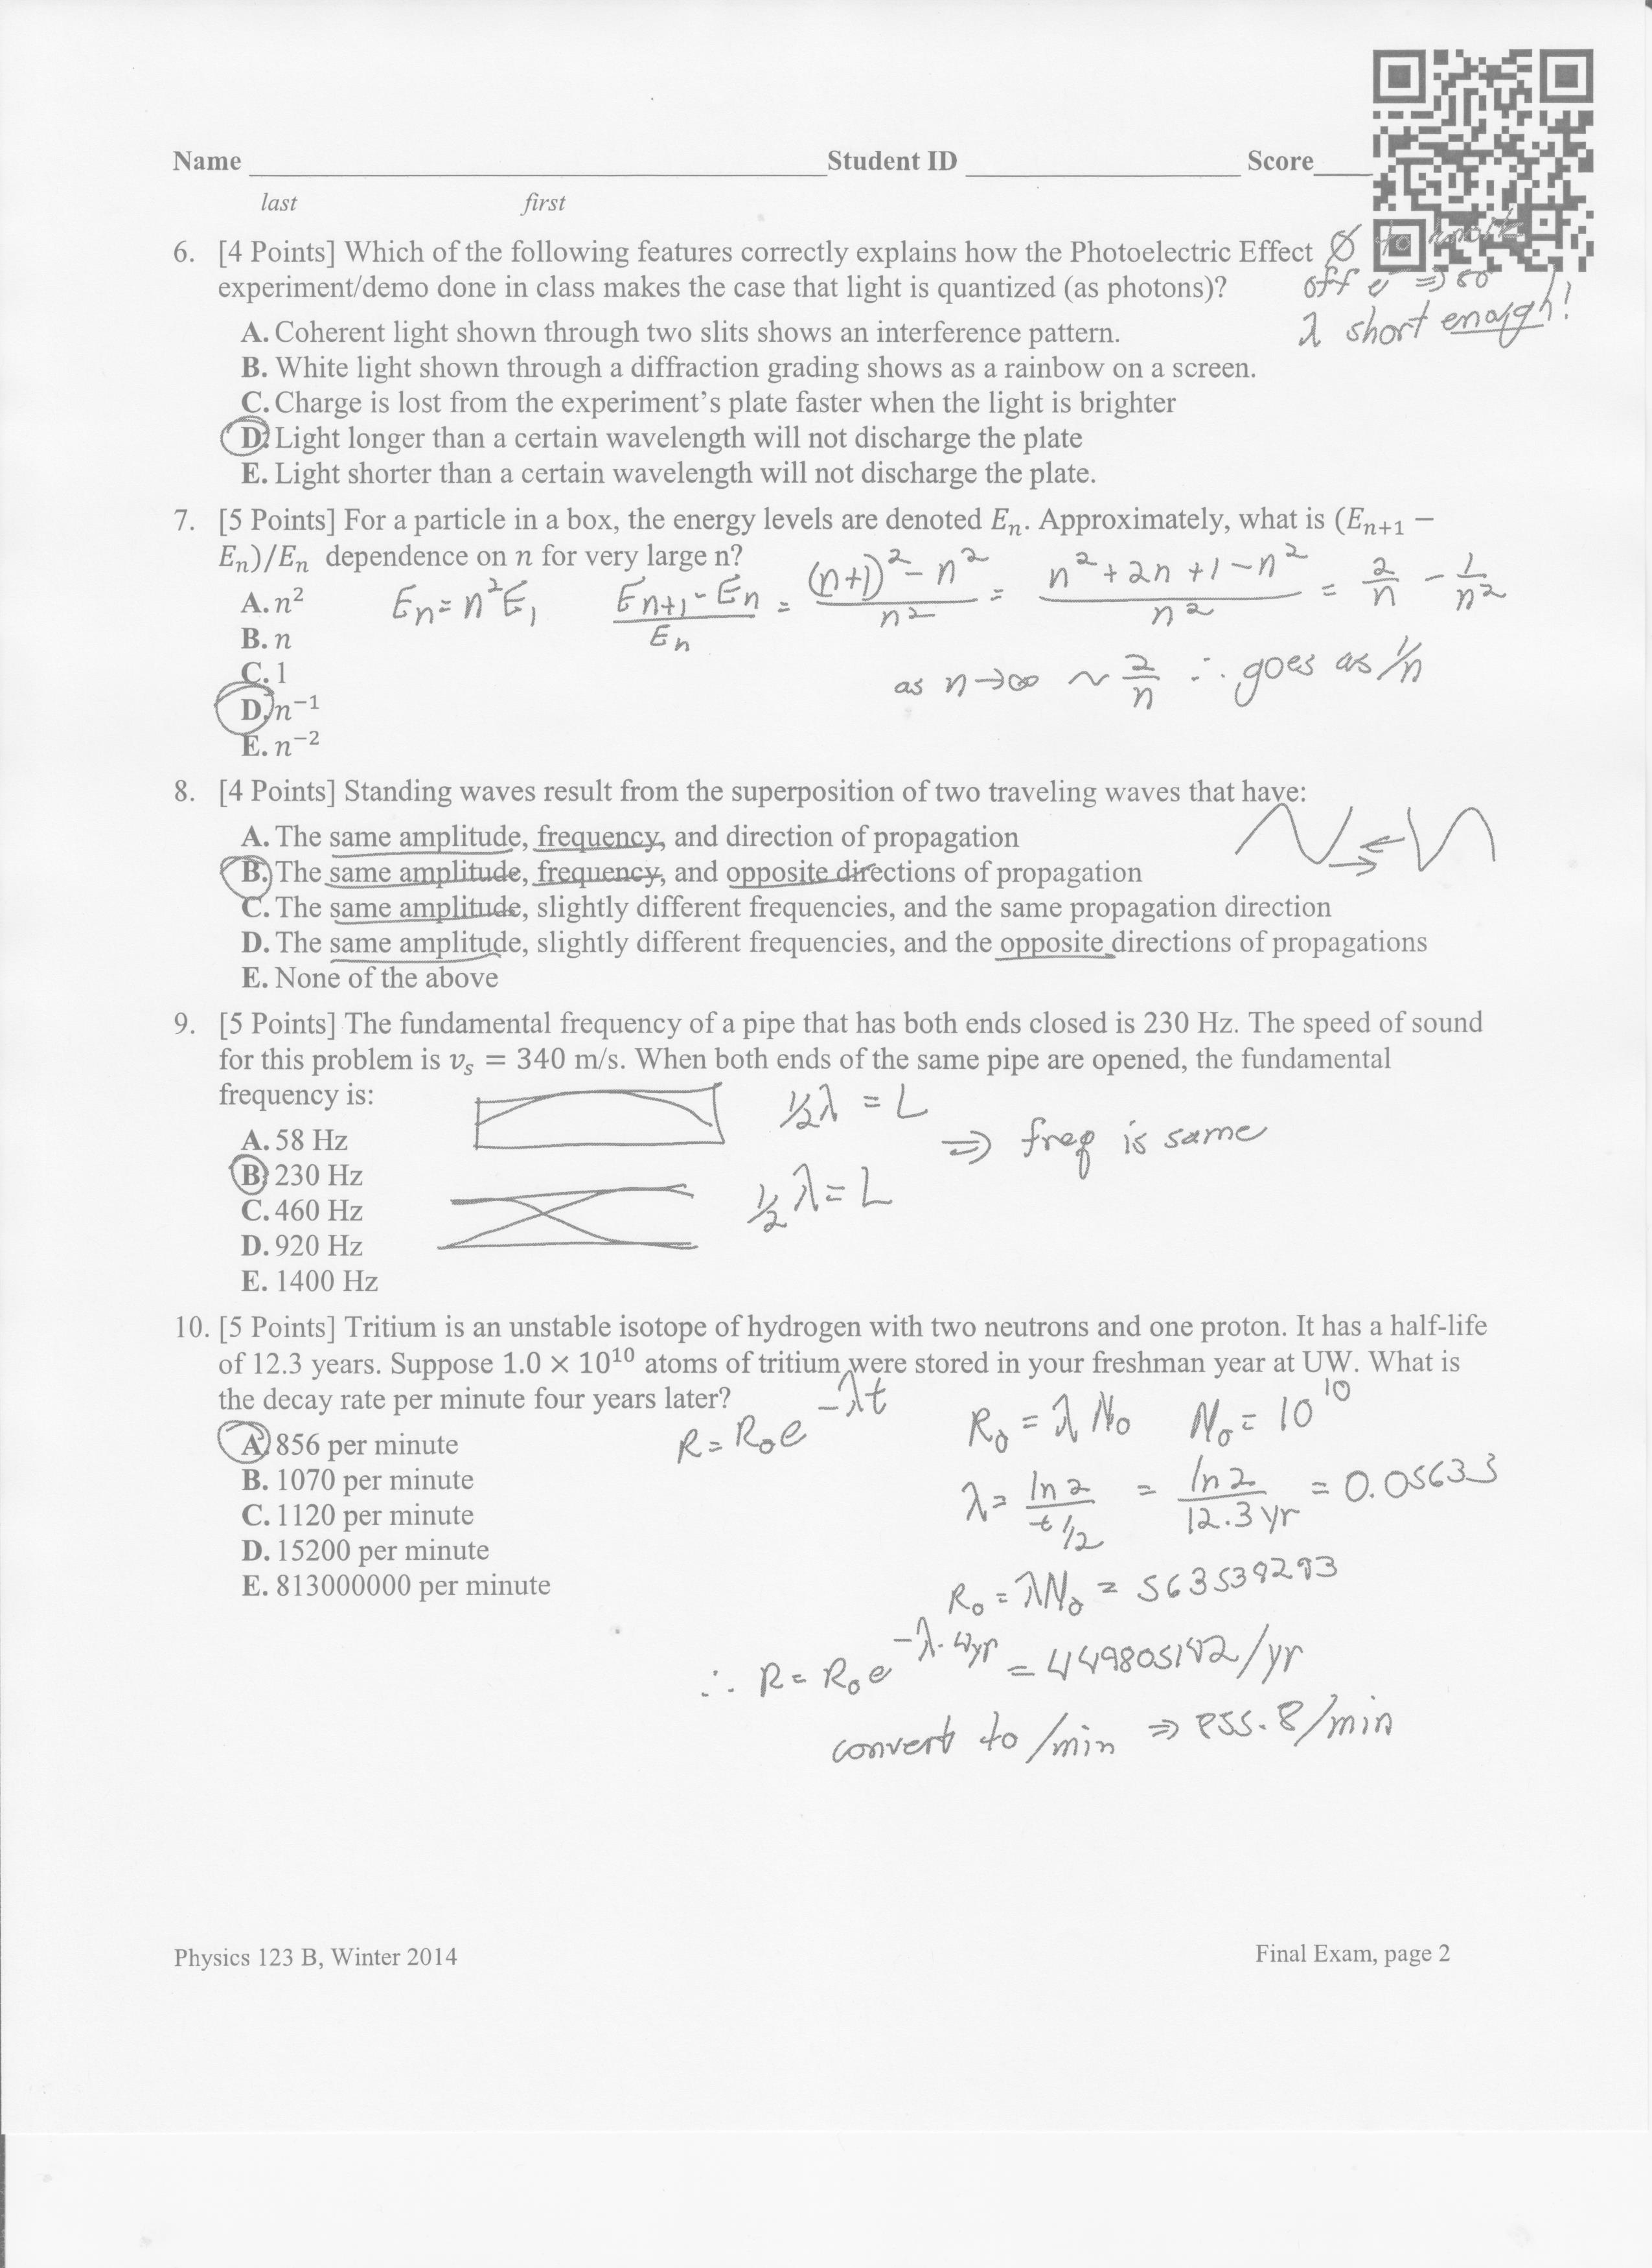 Name ____ Student ID ____ Score ____
last first
6. [4 Points] Which of the following features correctly explains how the Photoelectric Effect Ø to
experiment/demo done in class makes the case that light is quantized (as photons)? off e⁻ ⇒ so
λ short enough!
A. Coherent light shown through two slits shows an interference pattern.
B. White light shown through a diffraction grading shows as a rainbow on a screen.
C. Charge is lost from the experiment's plate faster when the light is brighter
D. Light longer than a certain wavelength will not discharge the plate
E. Light shorter than a certain wavelength will not discharge the plate.
7. [5 Points] For a particle in a box, the energy levels are denoted Eₙ. Approximately, what is (Eₙ₊₁ −
Eₙ)/Eₙ dependence on n for very large n?
A. n² Eₙ = n²E₁ (Eₙ₊₁ - Eₙ)/Eₙ = ((n+1)² - n²)/n² = (n² + 2n + 1 - n²)/n² = 2/n - 1/n²
B. n
C. 1 as n→∞ ~ 2/n ∴ goes as 1/n
D. n⁻¹
E. n⁻²
8. [4 Points] Standing waves result from the superposition of two traveling waves that have:
A. The same amplitude, frequency, and direction of propagation
B. The same amplitude, frequency, and opposite directions of propagation
C. The same amplitude, slightly different frequencies, and the same propagation direction
D. The same amplitude, slightly different frequencies, and the opposite directions of propagations
E. None of the above
9. [5 Points] The fundamental frequency of a pipe that has both ends closed is 230 Hz. The speed of sound
for this problem is vₛ = 340 m/s. When both ends of the same pipe are opened, the fundamental
frequency is: ½λ = L
A. 58 Hz ⇒ freq is same
B. 230 Hz ½λ = L
C. 460 Hz
D. 920 Hz
E. 1400 Hz
10. [5 Points] Tritium is an unstable isotope of hydrogen with two neutrons and one proton. It has a half-life
of 12.3 years. Suppose 1.0 × 10¹⁰ atoms of tritium were stored in your freshman year at UW. What is
the decay rate per minute four years later?
R = R₀e^(-λt) R₀ = λN₀ N₀ = 10¹⁰
A. 856 per minute
B. 1070 per minute λ = ln 2/t½ = ln 2/12.3 yr = 0.05633
C. 1120 per minute
D. 15200 per minute
E. 813000000 per minute R₀ = λN₀ = 563539293
∴ R = R₀e^(-λ·4yr) = 449805142/yr
convert to /min ⇒ 855.8/min
Physics 123 B, Winter 2014 Final Exam, page 2